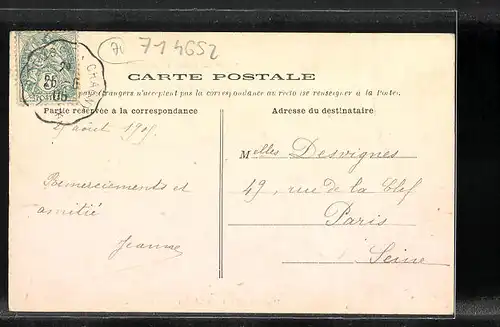 71 714652
CARTE POSTALE
pays étrangers n'acceptent pas la correspondance au recto (se renseigner à la Poste).
Partie réservée à la correspondance
Adresse du destinataire
25 août 1905
Melles Desvignes
Remerciements et
49, rue de la Clef
amitié
Paris
Jeanne
Seine